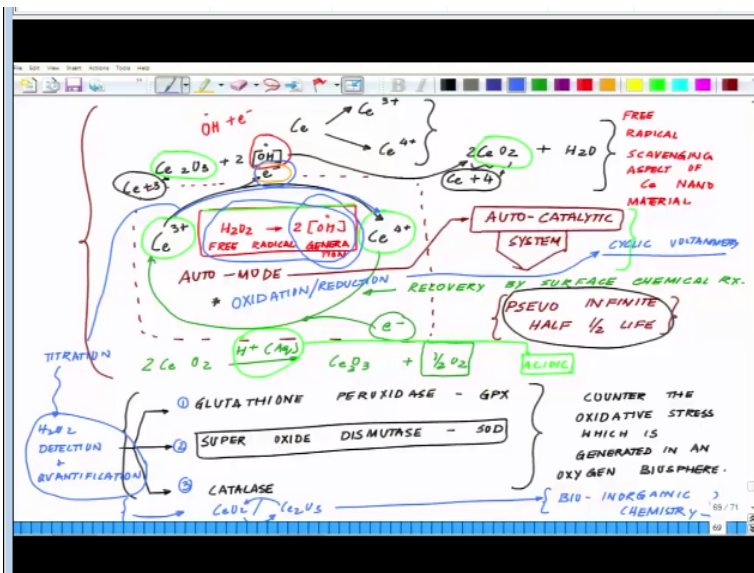 File Edit View Insert Actions Tools Help
ȮH + e-
Ce
Ce3+
Ce4+
Ce2O3 + 2[ȮH]
2CeO2 + H2O
Ce+3
e-
Ce+4
FREE
RADICAL
SCAVENGING
ASPECT OF
Ce NANO
MATERIAL
Ce3+
H2O2 → 2[ȮH]
FREE RADICAL GENERA
TION
Ce4+
AUTO-CATALYTIC
SYSTEM
CYCLIC VOLTAMMETRY
AUTO-MODE
* OXIDATION/REDUCTION
RECOVERY BY SURFACE CHEMICAL RX.
PSEUO INFINITE
HALF 1/2 LIFE
e-
TITRATION
2CeO2 H+ (Aq) Ce2O3 + 1/2O2
ACIDIC
H2O2
DETECTION
+
QUANTIFICATION
① GLUTATHIONE PERUXIDASE - GPX
② SUPER OXIDE DISMUTASE - SOD
③ CATALASE
COUNTER THE
OXIDATIVE STRESS
WHICH IS
GENERATED IN AN
OXYGEN BIUSPHERE.
CeO2 / Ce2O3
BIO-INORGANIC
CHEMISTRY
69/71
69